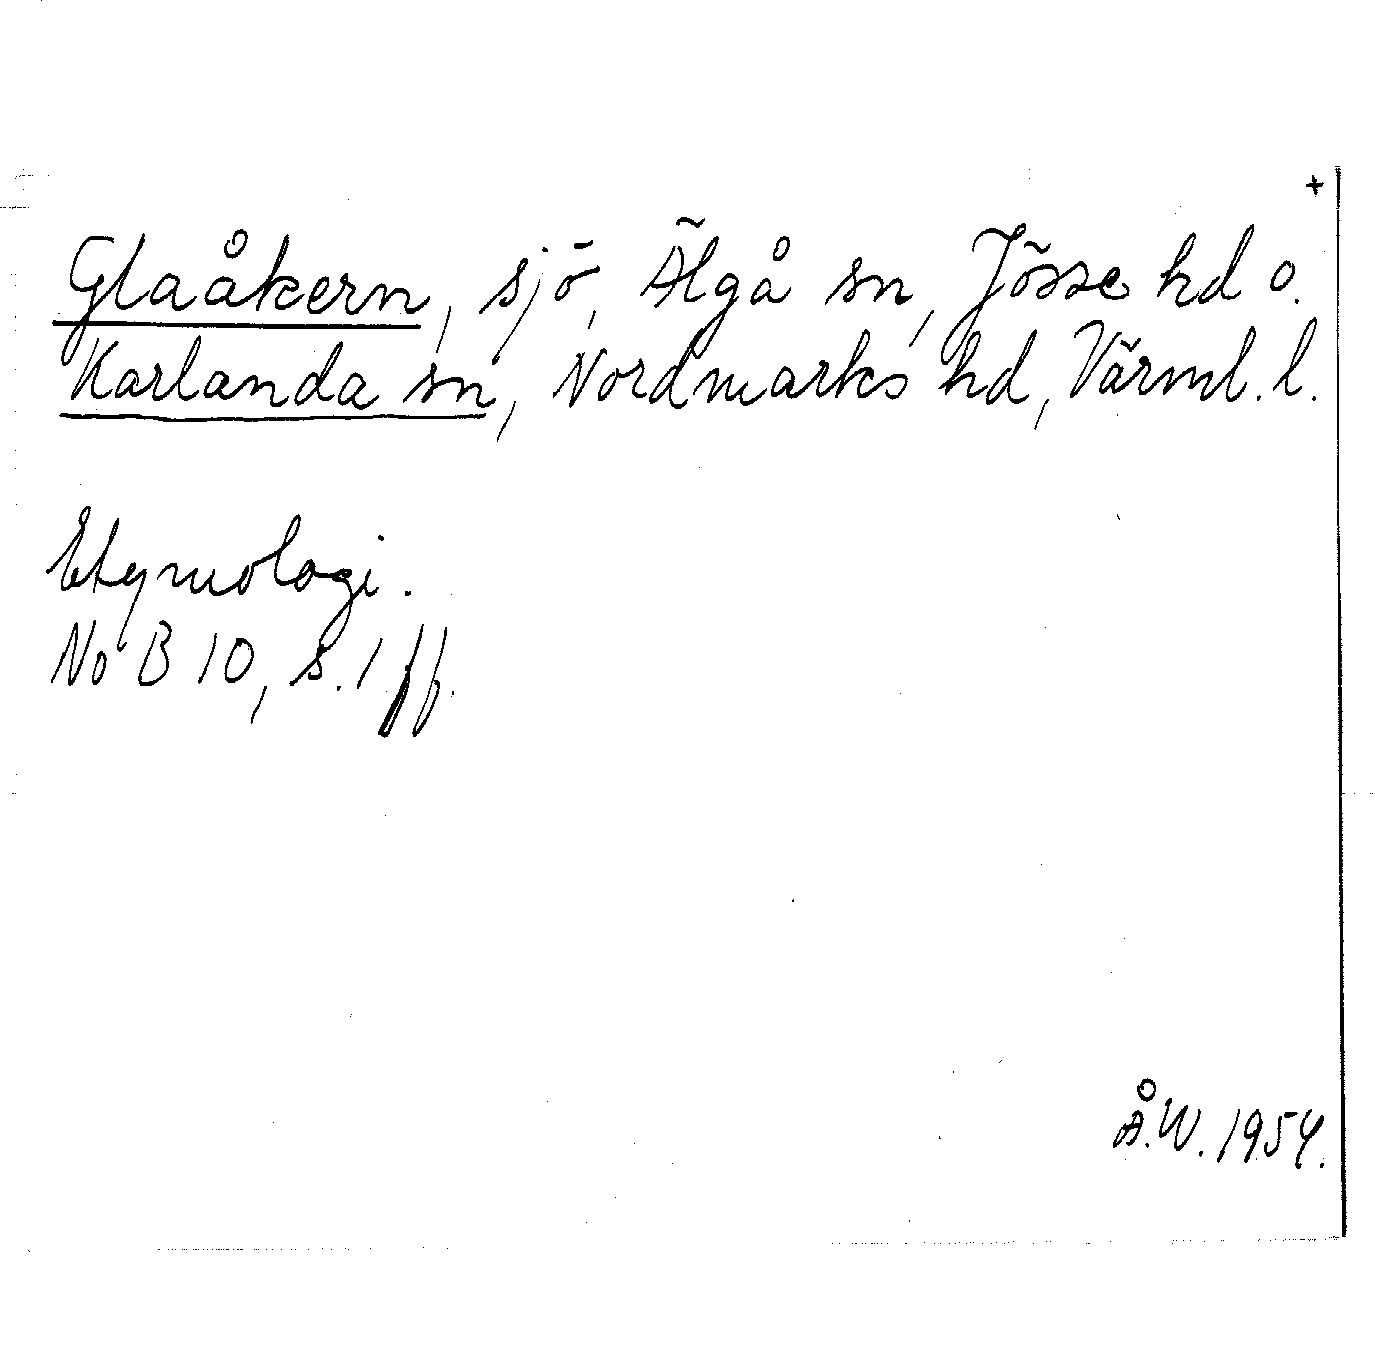 +
Glaåkern, sjö, Älgå sn, Jösse hd o.
Karlanda sn, Nordmarks hd, Värml. l.
Etymologi.
NoB 10, s. 1 ff.
Å.W. 1954.